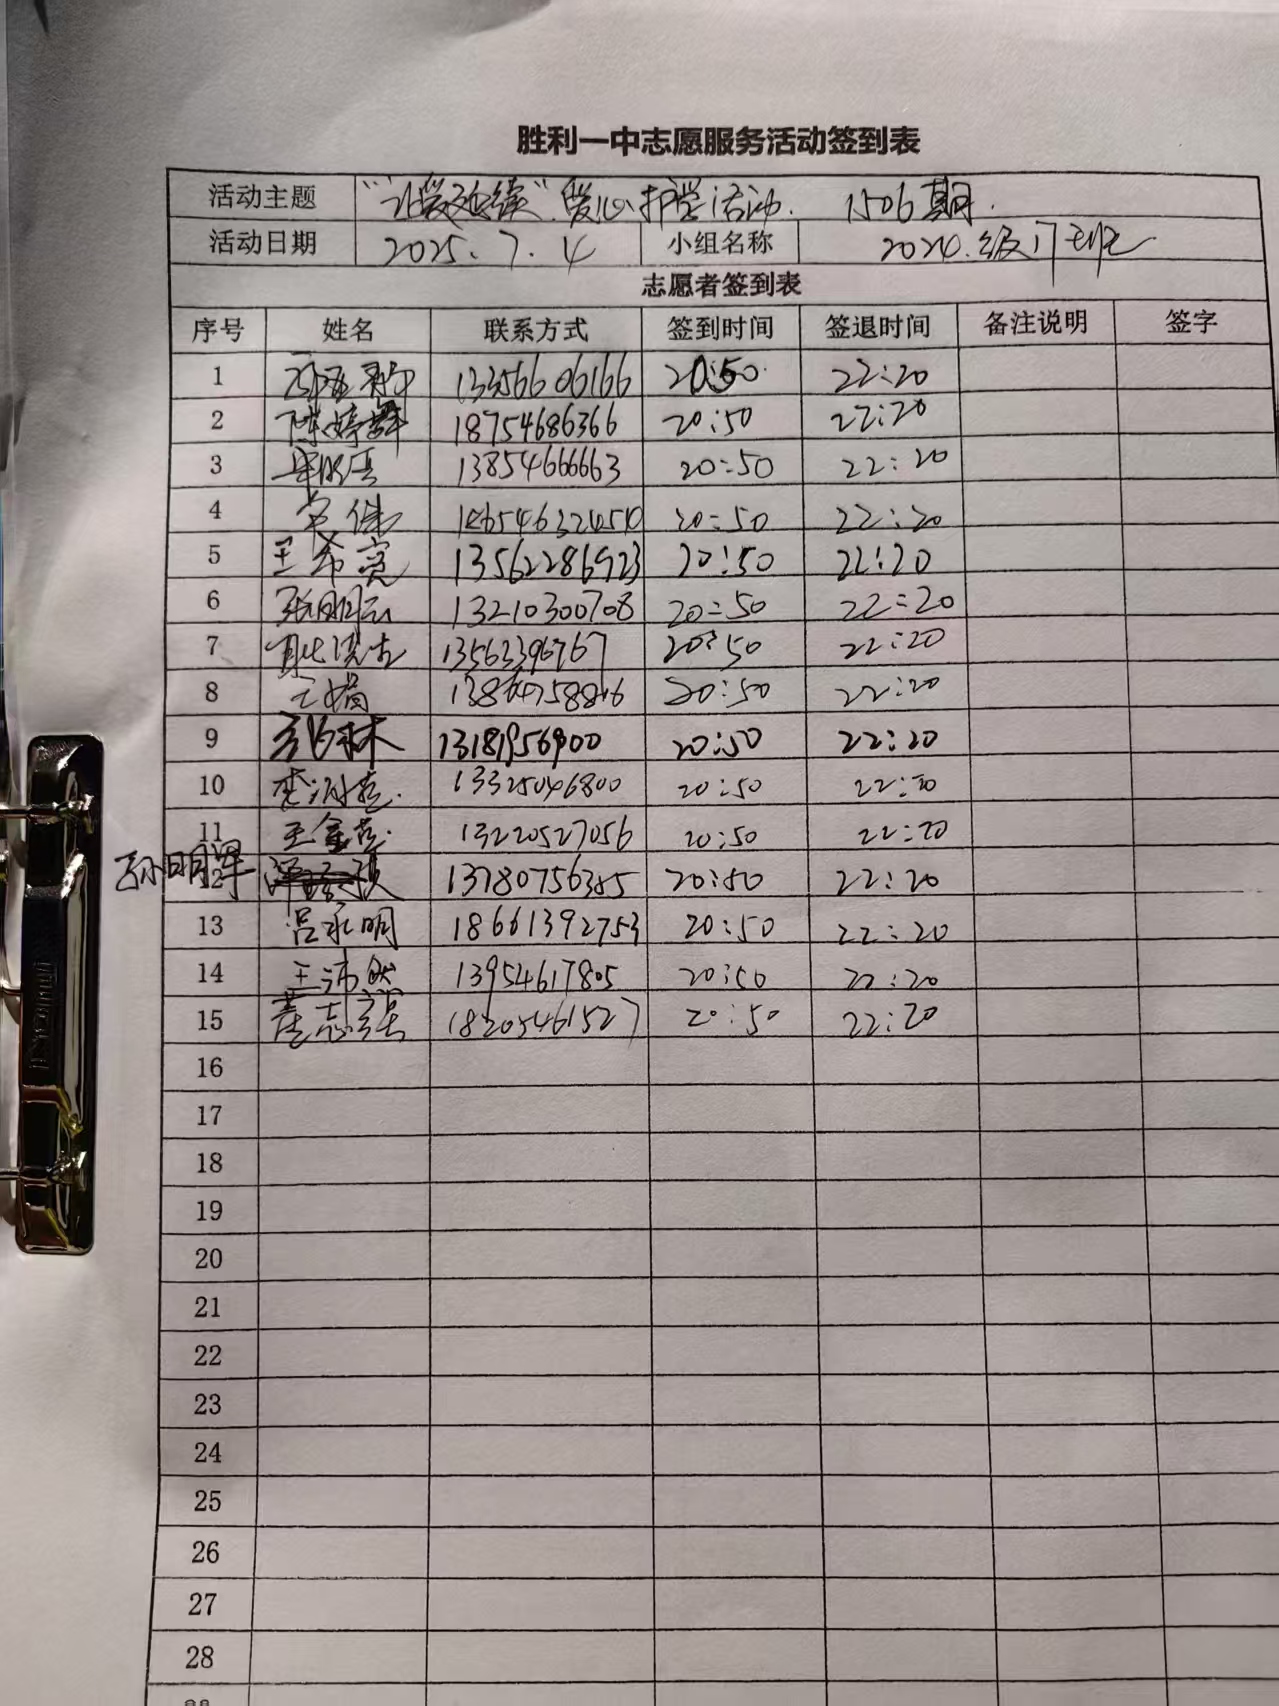 胜利一中志愿服务活动签到表
活动主题 "让爱延续"爱心护学活动. 1506期.
活动日期 2025.7.4 小组名称 2024.级17班
志愿者签到表
序号 姓名 联系方式 签到时间 签退时间 备注说明 签字
1 13356606166 20:50 22:20
2 陈婷 18754686366 20:50 22:20
3 13854666663 20:50 22:20
4 伟 20:50 22:20
5 王希亮 13562286923 20:50 22:20
6 张明云 13210300708 20:50 22:20
7 13562396767 20:50 22:20
8 王娟 20:50 22:20
9 林 13181956900 20:50 22:20
10 李 13325046800 20:50 22:20
11 王金 13220527056 20:50 22:20
孙明军 12 13780756385 20:50 22:20
13 吕永明 18661392753 20:50 22:20
14 王沛然 13954617805 20:50 22:20
15 董志强 18205461527 20:50 22:20
16
17
18
19
20
21
22
23
24
25
26
27
28